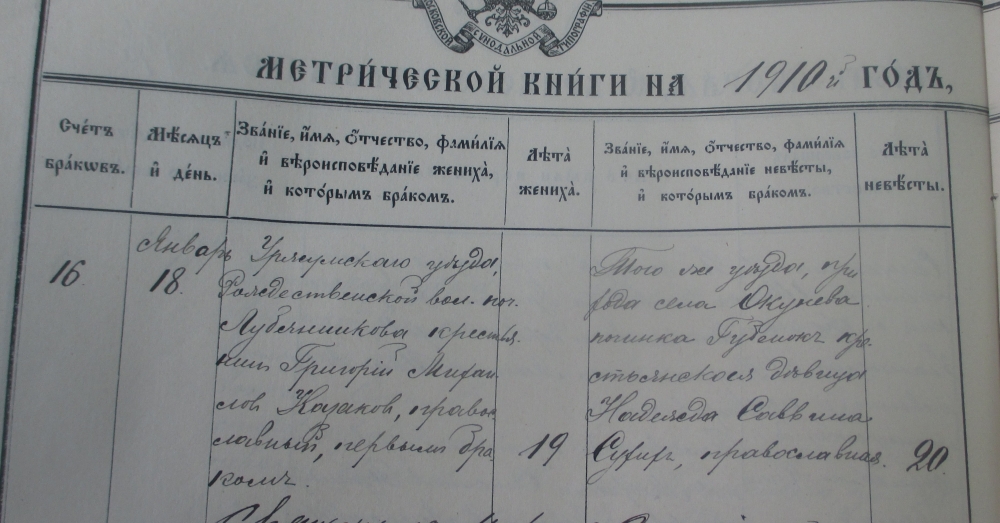 МОСКОВСКОЙ СѴНОДАЛЬНОЙ ТИПОГРАФІИ
МЕТРИ́ЧЕСКОЙ КНИ́ГИ НА 1910й ГО́ДЪ,
Сче́тъ бра́кωвъ.
Мѣ́сяцъ и҆ де́нь.
Зва́нїе, и҆́мѧ, ѻ҆́тчество, фами́лїѧ
и҆ вѣроисповѣ́данїе жениха̀,
и҆ кото́рымъ бра́комъ.
Лѣ́та жениха̀.
Зва́нїе, и҆́мѧ, ѻ҆́тчество, фами́лїѧ
и҆ вѣроисповѣ́данїе невѣ́сты,
и҆ кото́рымъ бра́комъ.
Лѣ́та невѣ́сты.
16
Январь
18.
Уржумскаго уѣзда,
Рождественской вол. поч.
Лубянникова крестья-
нинъ Григорій Михаи-
лов Казаков, право-
славный, первымъ бра-
комъ.
19
Того же уѣзда, при
хода села Окунева
починка крe-
стьянская дѣвица
Надежда Саввина
православная.
20.